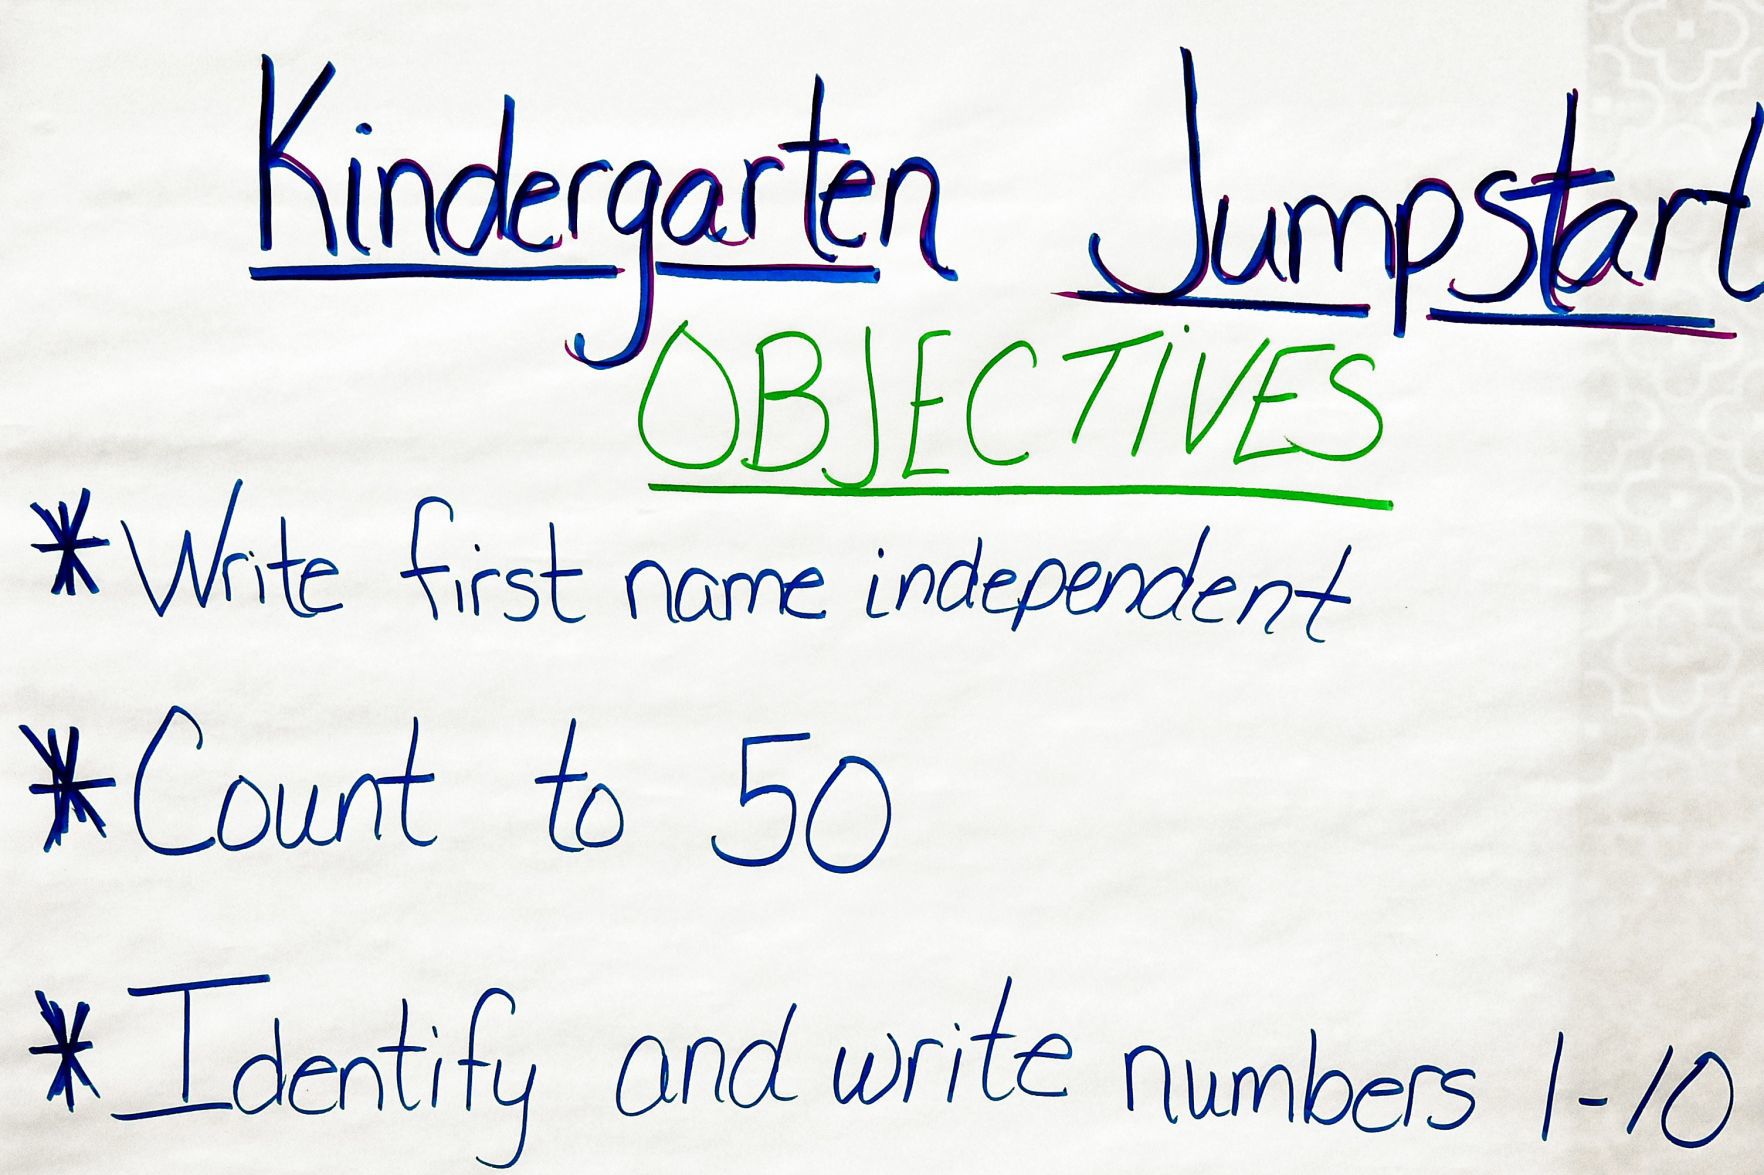 Kindergarten Jumpstart
OBJECTIVES
* Write first name independent
* Count to 50
* Identify and write numbers 1-10